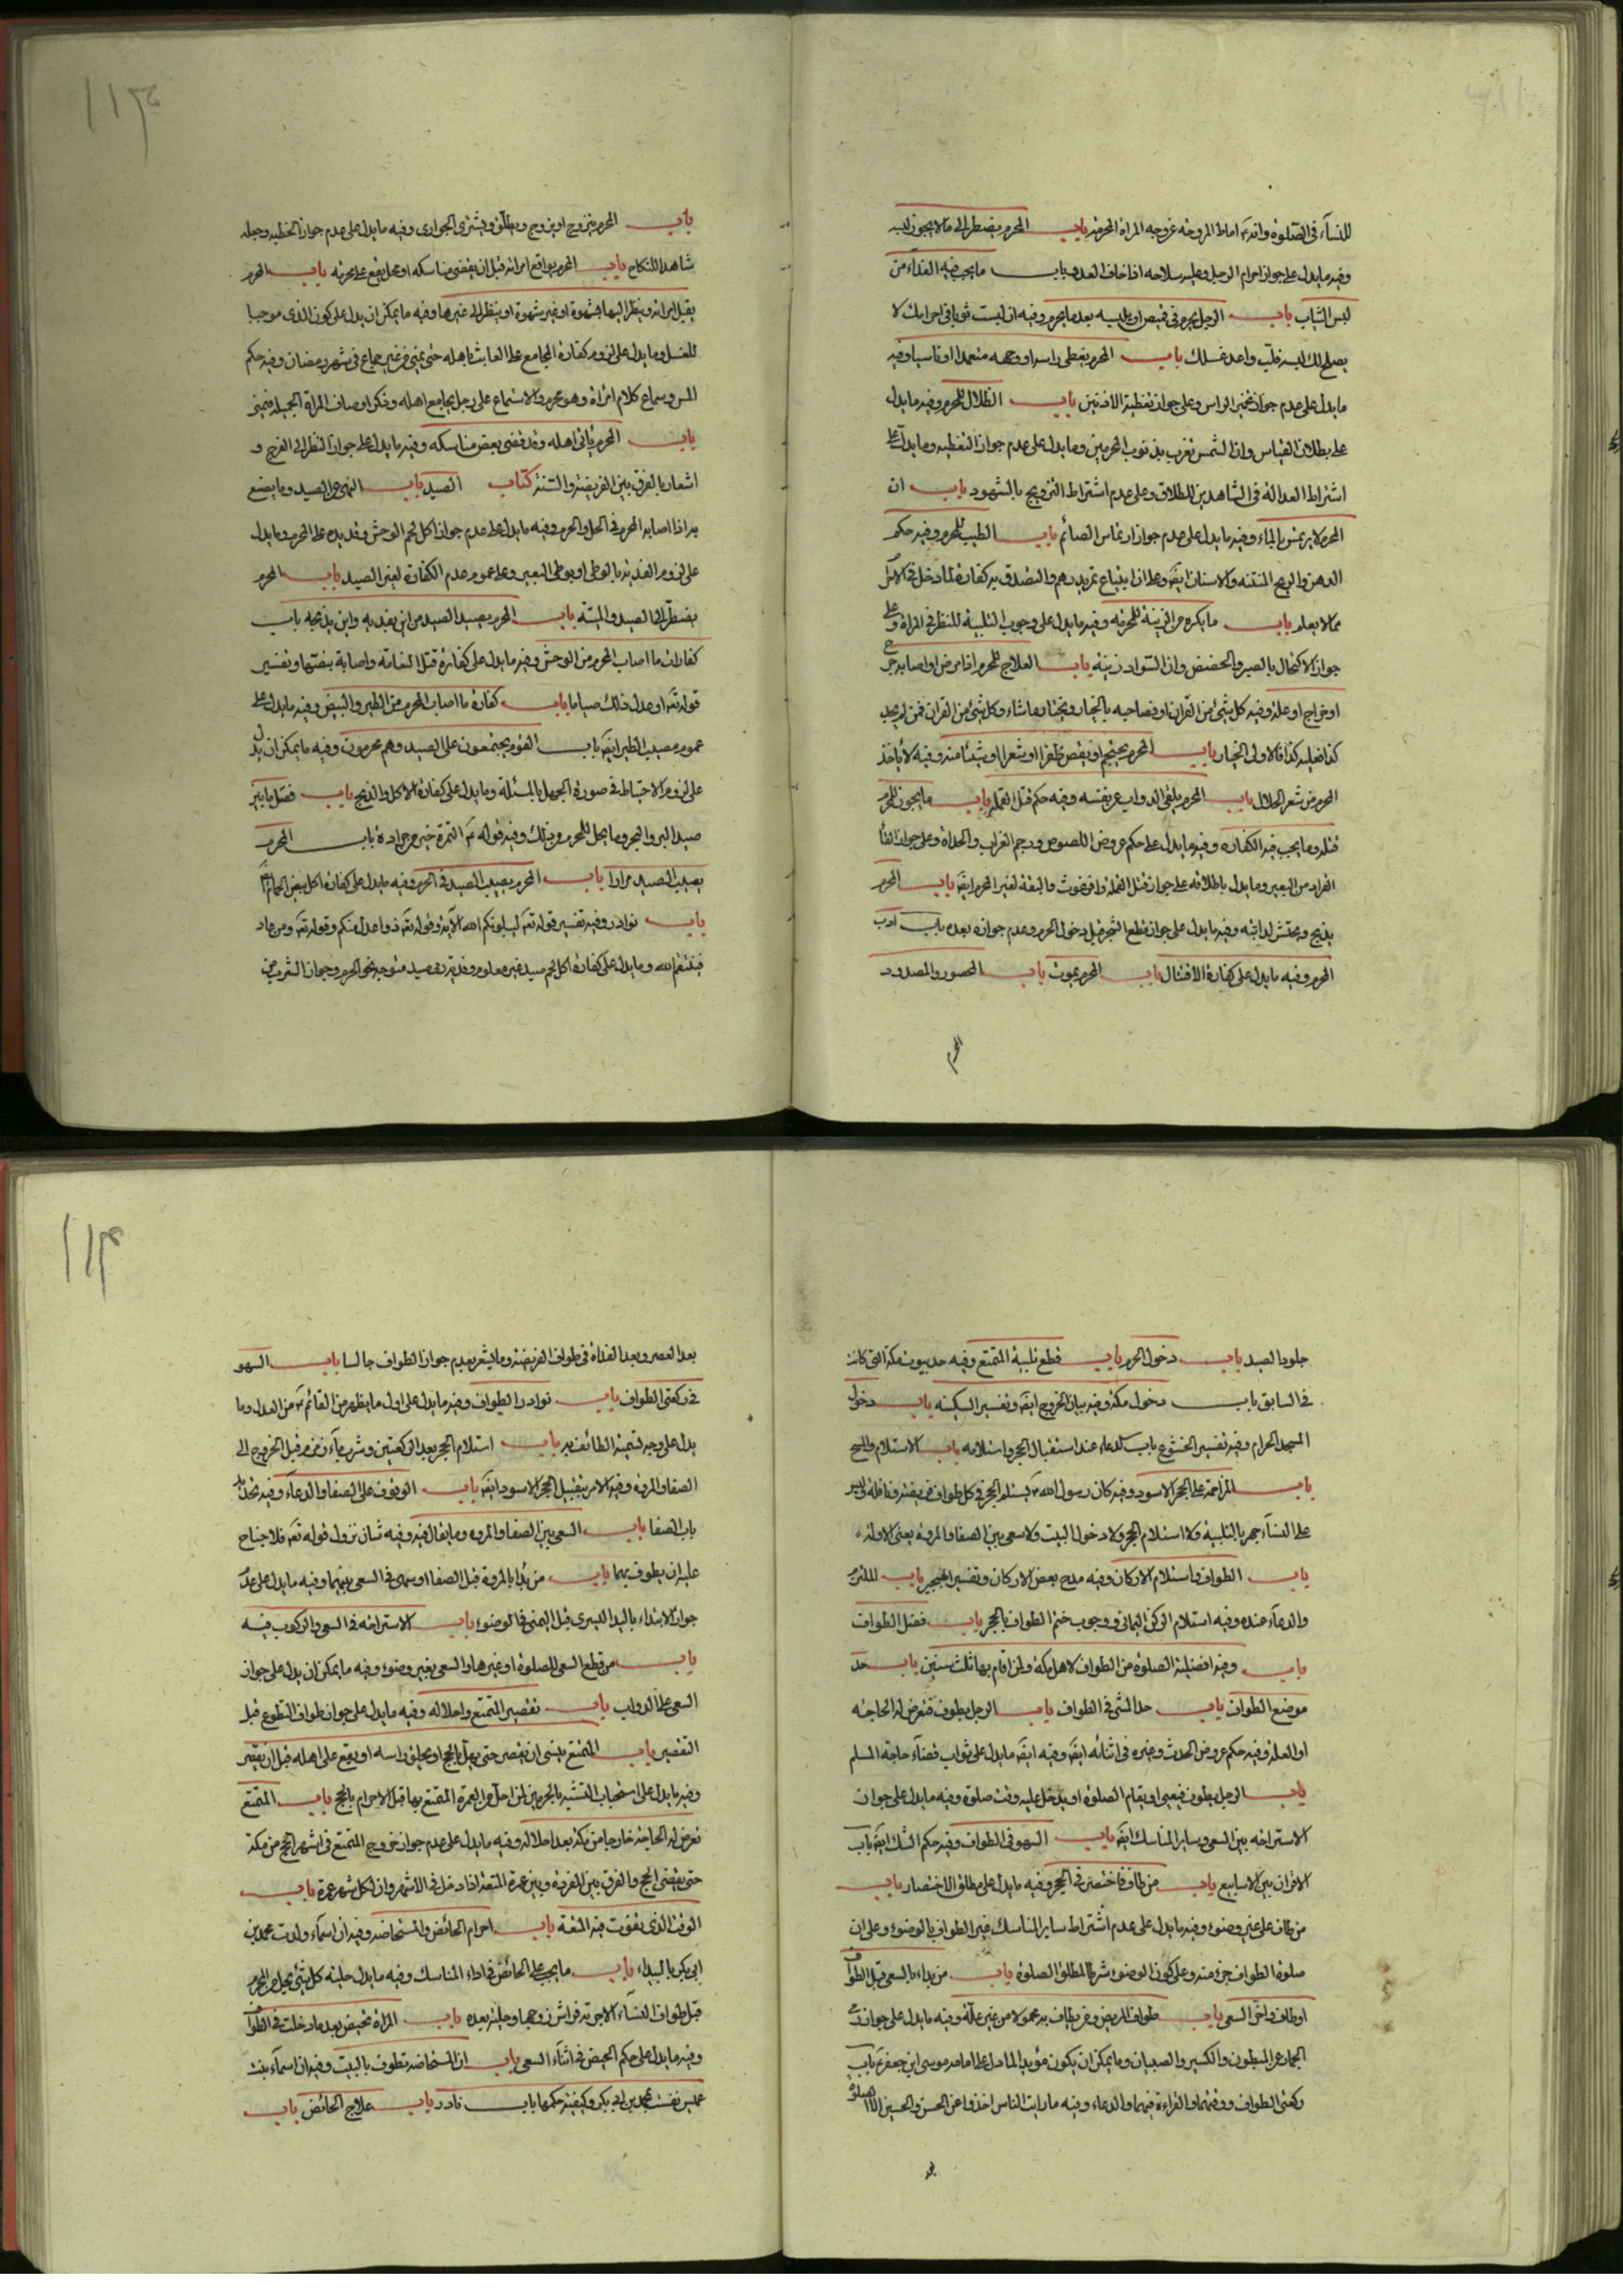 للنسآء فى الصّلوة وانه اماط المروحه عن وجه المراة المحرمه باب المحرم يضطر الى مالايجوز لبسه
وفيه مايدل على جواز احرام الرجل وعليه سلاحه اذا خاف العدو باب مايجب فيه الفداء من
لبس الثياب باب الرجل يحرم فى قميص او يلبسه بعد مايحرم وفيه ان لبست ثوبا فى احرامك لا
يصلح لك لبسه فلبّ واعد غسلك باب المحرم يغطى راسه او وجهه متعمدا او ناسيا وفيه
مايدل على عدم جواز تخمير الراس وعلى جواز تغطية الاذنين باب الظلال للمحرم وفيه مايدل
على بطلان القياس وان الشمس تغرب بذنوب المحرمين ومايدل على عدم جواز التغطيه ومايدل على
اشتراط العدالة فى الشاهدين للطلاق وعلى عدم اشتراط التزويج بالشهود باب ان
المحرم لا يرتمس بالماء وفيه مايدل على عدم جواز ارتماس الصائم باب الطيب للمحرم وفيه حكم
الدهن والريح المنتنه والاسنان ايضَ وعلى ان ابتياع تمر بدرهم والتصدق به كفارة لما دخل فى الاحرام
ممالا يعلم باب مايكره من الزينة للمحرمه وفيه مايدل على وجوب التلبية للنظر فى المراة وعلى
جواز الاكتحال بالصبر والحضض وان السّواد زينة باب العلاج للمحرم اذا مرض او اصابه جرح
او خراج او علة وفيه كل شئ من القران او فصاحبه بالخيار ويختار ماشاء وكل شئ من القران فمن لم يجد
كذا فعليه كذا فالاولى الخيار باب المحرم يحتجم او يقص ظفرا او شعرا او شيئا منه وفيه لا ياخذ
المحرم من شعر الحلال باب المحرم يلقى الدواب عن نفسه وفيه حكم قتل القمله باب مايجوز للمحرم
قتله ومايجب فيه الكفاره وفيه مايدل على حكم عروض اللصوص ورجم الغراب والحداة وعلى جواز القاء
القراد من البعير ومايدل باطلاقه على جواز قتل النملة والبرغوث والبقة لغير المحرم ايضَ باب المحرم
يذبح ويحتش لدابته وفيه مايدل على جواز قطع الشجر قبل دخول الحرم وعدم جوازه بعده باب ادب
المحرم وفيه مايدل على كفارة الاقتتال باب المحرم يموت باب المحصور والمصدود
المحرم
باب المحرم يتزوج او يزوج ويطلّق ويشترى الجوارى وفيه مايدل على عدم جواز الخطبه وجعله
شاهدا للنكاح باب المحرم يواقع امراته قبل ان يقضى مناسكه او محل يقع على محرمه باب المحرم
يقبل امراته وينظر اليها بشهوة او غير شهوة او ينظر الى غيرها وفيه مايمكن ان يدل على كون الذى موجبا
للغسل ومايدل على لزوم كفارة المجامع على العابث باهله حتى يمنى من غير جماع فى شهر رمضان وفيه حكم
المس وسماع كلام امراة وهو محرم والاستماع على رجل يجامع اهله وذكر اوصاف المراة الجميله فيمنى
باب المحرم ياتى اهله وقد قضى بعض مناسكه وفيه مايدل على جواز النظر الى الفرج و
اشعار بالفرق بين الفريضة والسّنة كتاب الصيد باب النهى عن الصيد ومايصنع
به اذا اصابه المحرم فى الحل والحرم وفيه مايدل على عدم جواز اكل لحم الوحش وقديده على المحرم ومايدل
على لزوم الفدية بالوطى او بوطى البعير وعلى عموم عدم الكفارة لغير الصيد باب المحرم
يضطرّ الى الصيد والميتة باب المحرم يصيد الصيد من اين يفديه واين يذبحه باب
كفارات مااصاب المحرم من الوحش وفيه مايدل على كفارة قتل النعامة واصابة بيضتها وتفسير
قوله تعَ او عدل ذلك صياما باب كفارة مااصاب المحرم من الطير والبيض وفيه مايدل على
عموم مصيب الطير ايضَ باب القوم يجتمعون على الصيد وهم محرمون وفيه مايمكن ان يدل
على لزوم الاحتياط فى صورة الجهل بالمسئلة ومايدل على كفارة الاكل والذبح باب فصل مابين
صيد البر والبحر ومايحل للمحرم من ذلك وفيه قوله عَ التمرة خير من جرادة باب المحرم
يصيب الصيد مرارا باب المحرم يصيب الصيد فى الحرم وفيه مايدل على كفارة اكل بيض الحمام
باب نوادر وفيه تفسير قوله تعَ ليبلونكم الله الآية وقوله تعَ ذوا عدل منكم وقوله تعَ ومن عاد
فينتقم الله ومايدل على كفارة اكل لحم صيد غير معلوم وفدية رمى صيد متوجه نحو الحرم وجواز الشرب من
جلود الصيد باب دخول الحرم باب قطع تلبية المتمتع وفيه حد بيوت مكة التى كانت
فى السابق باب دخول مكة وفيه بيان الخروج ايضَ وتفسير السكينه باب دخول
المسجد الحرام وفيه تفسير الخشوع باب الدعاء عند استقبال الحجر واستلامه باب الاستلام والمسح
باب المزاحمة على الحجر الاسود وفيه كان رسول الله صَ يستلم الحجر فى كل طواف فريضة ونافلة وليس
على النسآء جهر بالتلبية ولا استلام الحجر ولا دخول البيت ولا سعى بين الصفا والمروة يعنى الهرولة
باب الطواف واستلام الاركان وفيه مدح بعض الاركان وتفسير الهجير باب الملتزم
والدعآء عنده وفيه استلام الركن اليمانى ووجوب ختم الطواف بالحجر باب فضل الطواف
باب وفيه افضلية الصلوة من الطواف لاهل مكة ولمن اقام بها ثلث سنين باب حد
موضع الطواف باب حد المشى فى الطواف باب الرجل يطوف فتعرض له الحاجه
او العلة وفيه حكم عروض الحدث وغيره فى اثنائه ايضَ وفيه ايضَ مايدل على ثواب قضآء حاجة المسلم
باب الرجل يطوف فيعيى او يقام الصلوة او يدخل عليه وقت صلوة وفيه مايدل على جواز
الاستراحه بين السعى وساير المناسك ايضَ باب السهو فى الطواف وفيه حكم الشك ايضَ باب
الاقران بين الاسابيع باب من طاف فاختصر فى الحجر وفيه مايدل على مطلق الاختصار باب
من طاف على غير وضوء وفيه مايدل على عدم اشتراط ساير المناسك غير الطواف بالوضوء وعلى ان
صلوة الطواف جزء منه وعلى كون الوضوء شرطا لمطلق الصلوة باب من بدا بالسعى قبل الطواف
او طاف واخّر السعى باب طواف المريض ومن يطاف به محمولا من غير علّة وفيه مايدل على جواز رمى
الجمار عن المبطون والكسير والصبيان ومايمكن ان يكون مؤيدا لمادل على امامه موسى ابن جعفر عَ باب
ركعتى الطواف ووقتهما والقراءة فيهما والدعاء وفيه مارايت الناس اخذوا عن الحسن والحسين الا الصلوة
بعد
بعد العصر وبعد الغداة فى طواف الفريضة ومايشعر بعدم جواز الطواف جالسا باب السهو
فى ركعتى الطواف باب نوادر الطواف وفيه مايدل على اول مايظهر من القائم عَ من العدل وما
يدل على وجه تسمية الطائف به باب استلام الحجر بعد الركعتين وشرب مآء زمزم قبل الخروج الى
الصفا والمروة وفيه الامر بتقبيل الحجر الاسود ايضَ باب الوقوف على الصفا والدعآء وفيه تحديد
باب الصفا باب السعى بين الصفا والمروه ومايقال فيه وفيه شان نزول قوله تعَ فلا جناح
عليه ان يطوف بهما باب من بدأ بالمروة قبل الصفا او سهى فى السعى بينهما وفيه مايدل على عدم
جواز الابتداء باليد اليسرى قبل اليمنى فى الوضوء باب الاستراحه فى السعى والركوب فيه
باب من قطع السعى للصلوة او غيرها والسعى بغير وضوء وفيه مايمكن ان يدل على جواز
السعى على الدواب باب تقصير المتمتع واحلاله وفيه مايدل على جواز طواف التطوع قبل
التقصير باب المتمتع ينسى ان يقصر حتى يهلّ بالحج او يحلق راسه او يقع على اهله قبل ان يقصر
وفيه مايدل على استحباب التشبه بالمحرمين لمن احل من العمرة المتمتع بها قبل الاحرام بالحج باب المتمتع
تعرض له الحاجة خارجا من مكة بعد احلاله وفيه مايدل على عدم جواز خروج المتمتع فى اشهر الحج من مكة
حتى يقضى الحج والفرق بين المفردة وبين عمرة المتعة اذا دخل فى الاشهر وان لكل شهر عمرة باب
الوقت الذى تفوت فيه المتعة باب احرام الحائض والمستحاضه وفيه ان اسمآء ولدت محمد بن
ابى بكر بالبيداء باب مايجب على الحائض فى اداء المناسك وفيه مايدل حلية كل شئ يحل من المحرم
قبل طواف النسآء الا جزية فراش زوجها وحليته بعده باب المراة تحيض بعد مادخلت فى الطواف
وفيه مايدل على حكم الحيض فى اثنآء السعى باب ان المستحاضه تطوف بالبيت وفيه ان اسمآء بنت
عميس نفست بمحمد بن ابى بكر وكيفية حكمها باب نادر باب علاج الحائض باب